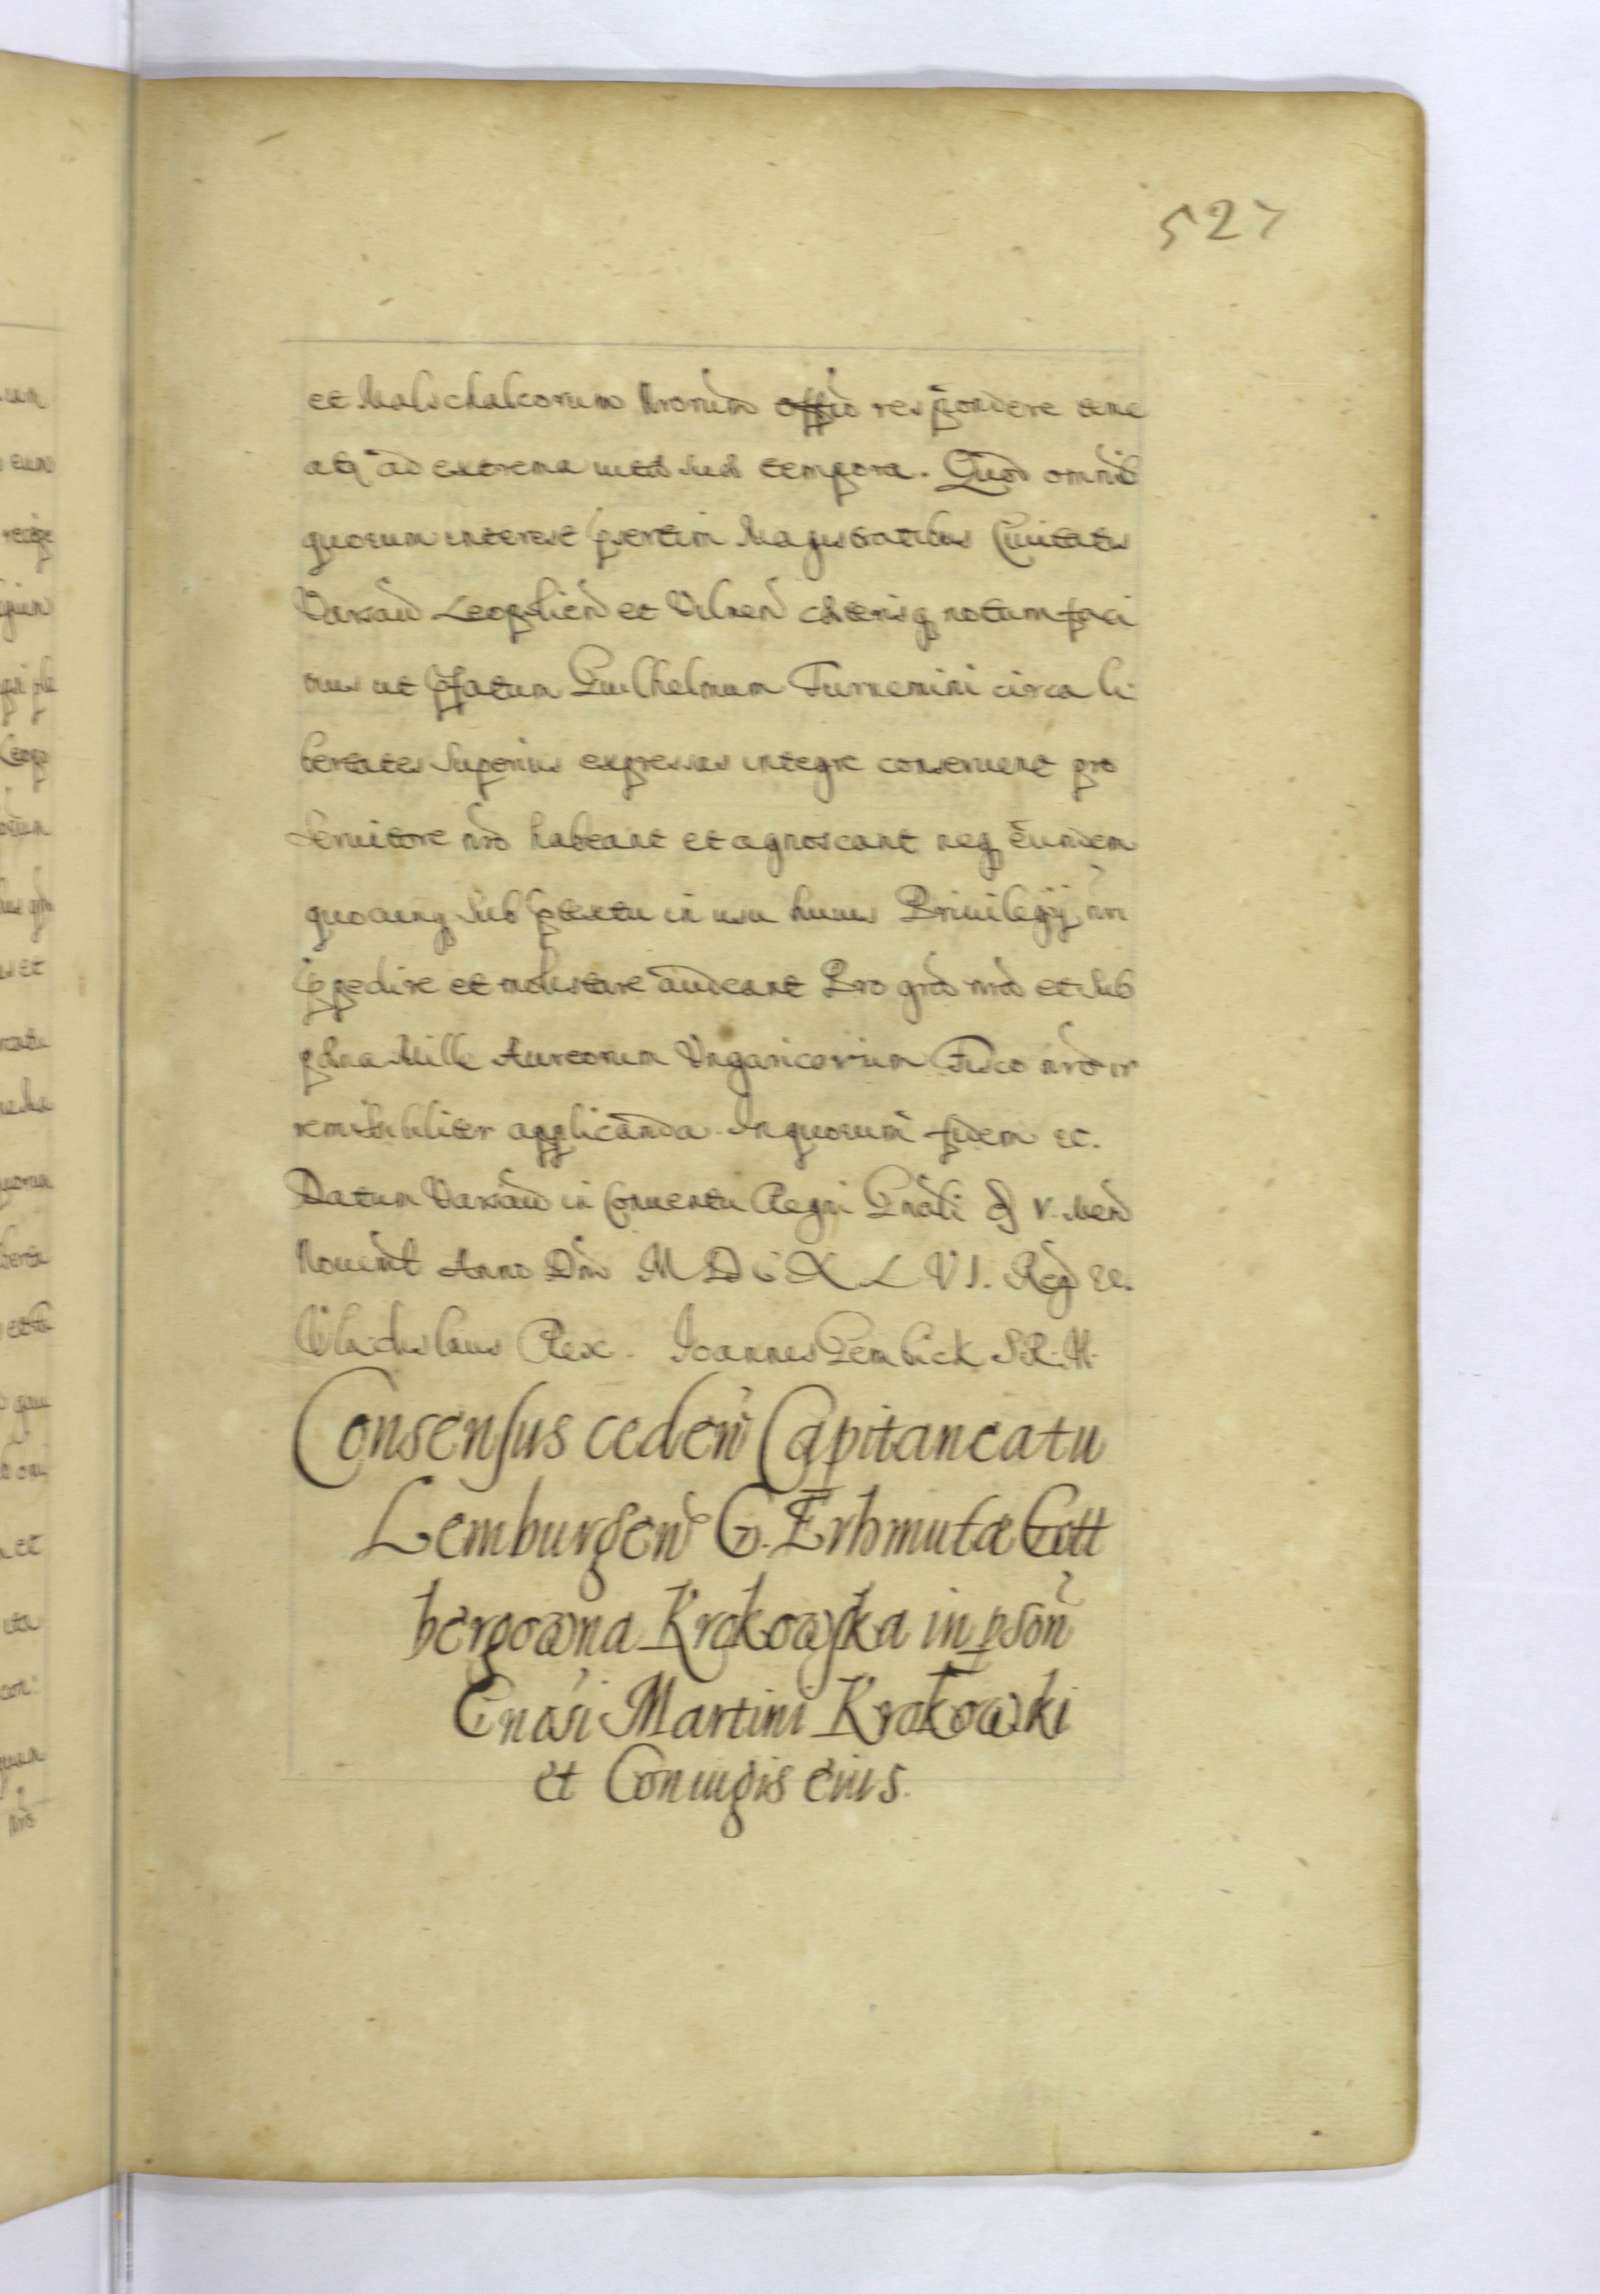 527
et Malschalcorum Nrorum offio respondere tene
atq ad extrema vitæ suæ tempora. Quod omnib
quorum interest psertim Magistratibus Civitatis
Varsav Leoplien et Vilnen cæterisq notum faci
mus ut pfatum Guilhelmum Turnemini circa li:
bertates superius expressas integre conservent pro
servitore nro habeant et agnoscant neq eundem
quocunq sub ptextu in usu huius Privilegij nri
ippedire et molestare audeant Pro gra nra et sub
pæna Mille Aureorum Vngaricorum Fisco nro ir
remissibiliter applicanda. In quorum fidem ec.
Datum Varsav in Conventu Regni Gnali d V. Men
Novemb Anno Dni M D C X L V I. Reg ec.
Vladislaus Rex. Joannes Gembick S.R.M.
Consensus ceden Capitaneatu
Lemburgen G. Erhmutæ Gott
bergowna Krokowska in pson
Gnosi Martini Krokowski
et Coniugis eius.